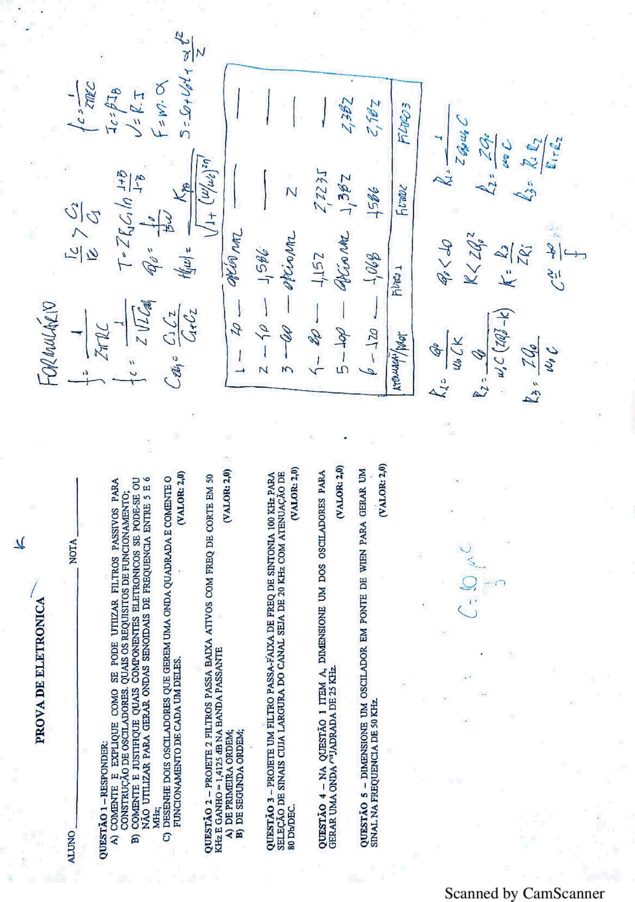 PROVA DE ELETRONICA
K
ALUNO NOTA
QUESTÃO 1 – RESPONDER:
A) COMENTE E EXPLIQUE COMO SE PODE UTIIZAR FILTROS PASSIVOS PARA
CONSTRUÇÃO DE OSCILADORES. QUAIS OS REQUISITOS DE FUNCIONAMENTO;
B) COMENTE E JUSTIFIQUE QUAIS COMPONENTES ELETRONICOS SE PODE-SE OU
NÃO UTILIZAR PARA GERAR ONDAS SENOIDAIS DE FREQUENCIA ENTRE 5 E 6
MHz;
C) DESENHE DOIS OSCILADORES QUE GEREM UMA ONDA QUADRADA E COMENTE O
FUNCIONAMENTO DE CADA UM DELES. (VALOR: 2,0)
QUESTÃO 2 – PROJETE 2 FILTROS PASSA BAIXA ATIVOS COM FREQ DE CORTE EM 50
KHz E GANHO = 1,4125 dB NA BANDA PASSANTE (VALOR: 2,0)
A) DE PRIMEIRA ORDEM;
B) DE SEGUNDA ORDEM;
QUESTÃO 3 – PROJETE UM FILTRO PASSA-FAIXA DE FREQ DE SINTONIA 100 KHz PARA
SELEÇÃO DE SINAIS CUJA LARGURA DO CANAL SEJA DE 20 KHz COM ATENUAÇÃO DE
80 Db/DEC. (VALOR: 2,0)
QUESTÃO 4 – NA QUESTÃO 1 ITEM A, DIMENSIONE UM DOS OSCILADORES PARA
GERAR UMA ONDA QUADRADA DE 25 KHz. (VALOR: 2,0)
QUESTÃO 5 – DIMENSIONE UM OSCILADOR EM PONTE DE WIEN PARA GERAR UM
SINAL NA FREQUENCIA DE 50 KHz. (VALOR: 2,0)
C = 10 µC / f
FORMULÁRIO
f = 1 / 2πRC
rc / re > C2 / C1
fc = 1 / 2πRC
Ic = βIB
fc = 1 / 2√LCeq
T = 2R1C1 ln 1+B / 1-B
V = R.I
Q0 = f0 / BW
F = m.a
Ceq = C1C2 / C1+C2
S = S0+V0t + at² / 2
1 — 20 — opcional — —
2 — 40 — 1,586 — —
3 — 60 — opcional 2 —
4 — 80 — 1,152 2,2235 —
5 — 100 — opcional 1,382 2,382
6 — 120 — 1,068 1,586 2,482
FILTRO 1 FILTRO 2 FILTRO 3
R1 = Q0 / ω0CK
Q0 < 10
K < 2Q0²
R2 = Q0 / ω0C(2Q0²-K)
K = R3 / 2R1
R3 = 2Q0 / ω0C
R2 = 2Q0 / ω0C
R3 = R1R2 / R1+R2
C ≅ 10 / f
Scanned by CamScanner